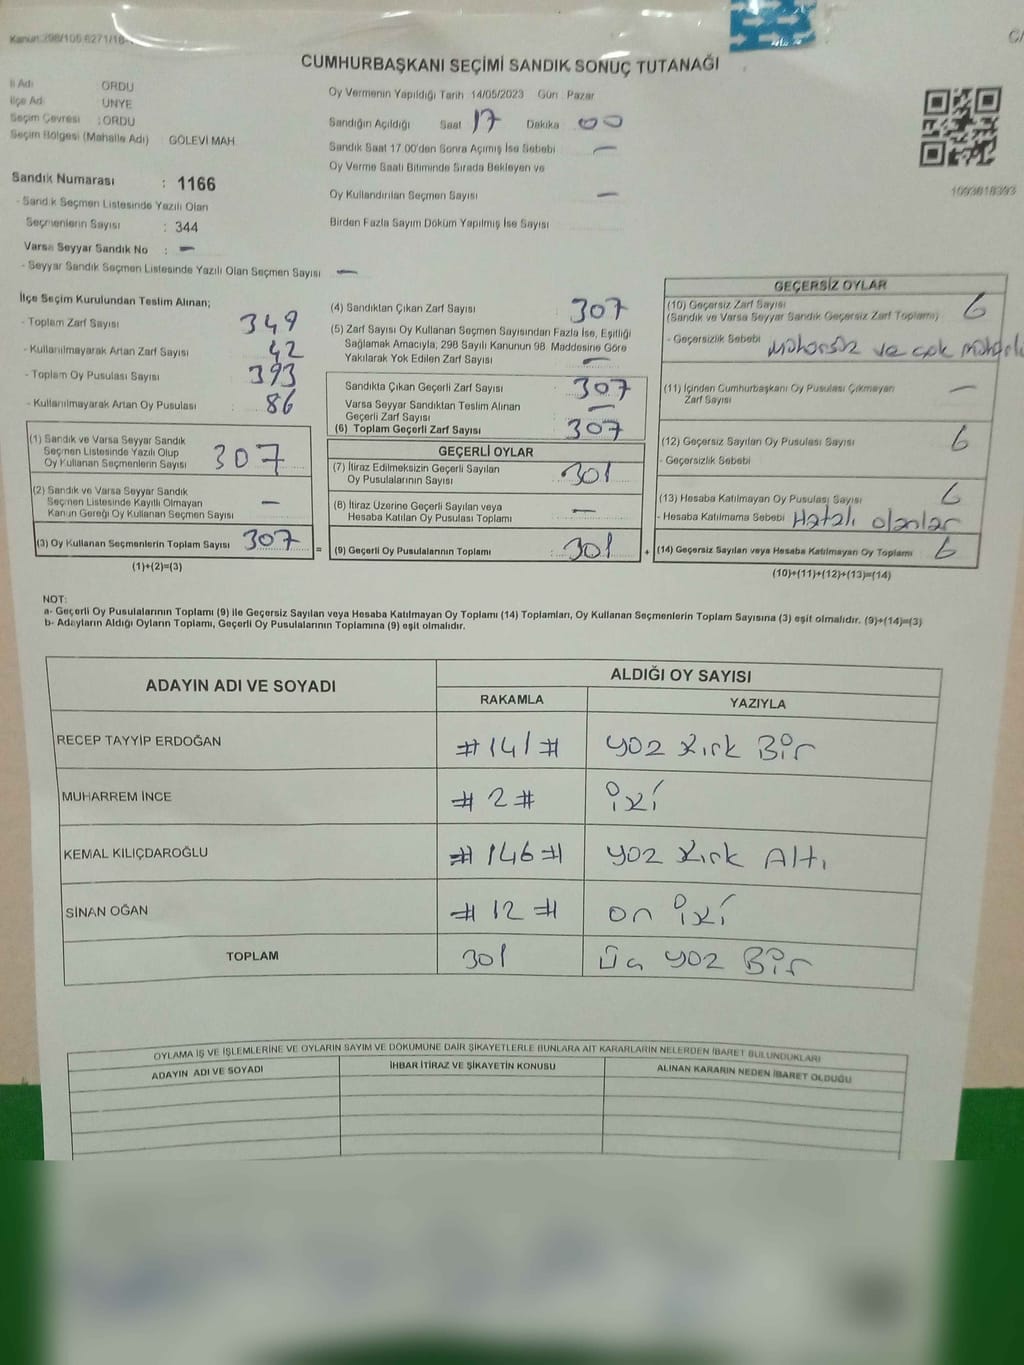 CUMHURBAŞKANI SEÇİMİ SANDIK SONUÇ TUTANAĞI
İl Adı ORDU
İlçe Adı ÜNYE
Seçim Çevresi : ORDU
Seçim Bölgesi (Mahalle Adı) GÖLEVİ MAH.
Sandık Numarası : 1166
- Sandık Seçmen Listesinde Yazılı Olan
Seçmenlerin Sayısı : 344
Varsa Seyyar Sandık No : —
- Seyyar Sandık Seçmen Listesinde Yazılı Olan Seçmen Sayısı —
Oy Vermenin Yapıldığı Tarih 14/05/2023 Gün : Pazar
Sandığın Açıldığı Saat 17 Dakika 00
Sandık Saat 17.00'den Sonra Açımış İse Sebebi —
Oy Verme Saati Bitiminde Sırada Bekleyen ve
Oy Kullandırılan Seçmen Sayısı —
Birden Fazla Sayım Döküm Yapılmış İse Sayısı
1093618393
İlçe Seçim Kurulundan Teslim Alınan;
- Toplam Zarf Sayısı 349
- Kullanılmayarak Artan Zarf Sayısı 42
- Toplam Oy Pusulası Sayısı 393
- Kullanılmayarak Artan Oy Pusulası 86
(1) Sandık ve Varsa Seyyar Sandık
Seçmen Listesinde Yazılı Olup
Oy Kullanan Seçmenlerin Sayısı 307
(2) Sandık ve Varsa Seyyar Sandık
Seçmen Listesinde Kayıtlı Olmayan
Kanun Gereği Oy Kullanan Seçmen Sayısı —
(3) Oy Kullanan Seçmenlerin Toplam Sayısı 307
(1)+(2)=(3)
=
(4) Sandıktan Çıkan Zarf Sayısı 307
(5) Zarf Sayısı Oy Kullanan Seçmen Sayısından Fazla İse, Eşitliği
Sağlamak Amacıyla, 298 Sayılı Kanunun 98. Maddesine Göre
Yakılarak Yok Edilen Zarf Sayısı —
Sandıkta Çıkan Geçerli Zarf Sayısı 307
Varsa Seyyar Sandıktan Teslim Alınan
Geçerli Zarf Sayısı —
(6) Toplam Geçerli Zarf Sayısı 307
GEÇERLİ OYLAR
(7) İtiraz Edilmeksizin Geçerli Sayılan
Oy Pusulalarının Sayısı 301
(8) İtiraz Üzerine Geçerli Sayılan veya
Hesaba Katılan Oy Pusulası Toplamı —
(9) Geçerli Oy Pusulalarının Toplamı : 301
+
GEÇERSİZ OYLAR
(10) Geçersiz Zarf Sayısı 6
(Sandık ve Varsa Seyyar Sandık Geçersiz Zarf Toplamı)
- Geçersizlik Sebebi Mühürsüz ve çok
(11) İçinden Cumhurbaşkanı Oy Pusulası Çıkmayan
Zarf Sayısı —
(12) Geçersiz Sayılan Oy Pusulası Sayısı 6
- Geçersizlik Sebebi
(13) Hesaba Katılmayan Oy Pusulası Sayısı 6
- Hesaba Katılmama Sebebi Hatalı olanlar
(14) Geçersiz Sayılan veya Hesaba Katılmayan Oy Toplamı 6
(10)+(11)+(12)+(13)=(14)
NOT:
a- Geçerli Oy Pusulalarının Toplamı (9) ile Geçersiz Sayılan veya Hesaba Katılmayan Oy Toplamı (14) Toplamları, Oy Kullanan Seçmenlerin Toplam Sayısına (3) eşit olmalıdır. (9)+(14)=(3)
b- Adayların Aldığı Oyların Toplamı, Geçerli Oy Pusulalarının Toplamına (9) eşit olmalıdır.
ADAYIN ADI VE SOYADI ALDIĞI OY SAYISI
RAKAMLA YAZIYLA
RECEP TAYYİP ERDOĞAN #141# yüz kırk Bir
MUHARREM İNCE #2# iki
KEMAL KILIÇDAROĞLU #146# yüz kırk Altı
SİNAN OĞAN #12# on iki
TOPLAM 301 Üç yüz Bir
OYLAMA İŞ VE İŞLEMLERİNE VE OYLARIN SAYIM VE DÖKÜMÜNE DAİR ŞİKAYETLERLE BUNLARA AİT KARARLARIN NELERDEN İBARET BULUNDUKLARI
ADAYIN ADI VE SOYADI İHBAR İTİRAZ VE ŞİKAYETİN KONUSU ALINAN KARARIN NEDEN İBARET OLDUĞU